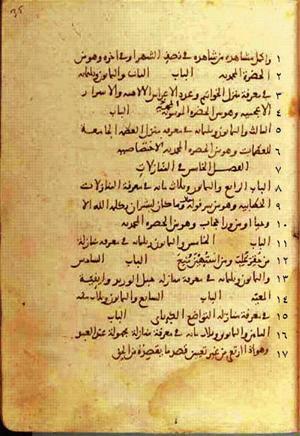 ٣٥
١ واكمل مشاهده من شاهده في نصف الشهر او في اخره وهو من
٢ الحضرة المحمدية الباب الثاني والثمانون وثلثمائة
٣ في معرفة منزل الخواتم وعدد الاعراس الالهية والاسرار
٤ الاعجمية وهو من الحضرة الموسوية الباب
٥ الثالث والثمانون وثلثمائة في معرفة منزل العظمة الجامعة
٦ للعظمات وهو من الحضرة المحمدية الاختصاصية
٧ الفصل الخامس في المنازلات
٨ الباب الرابع والثمانون وثلاث مائة في معرفة المنازلات
٩ الخطابية وهو من سر قوله وما كان لبشر ان يكلمه الله الا
١٠ وحيا او من وراء حجاب وهو من الحضرة المحمدية
١١ الباب الخامس والثمانون وثلثمائة في معرفة منازلة
١٢ من حقر غلب ومن استهين منع الباب السادس
١٣ والثمانون وثلثمائة في معرفة منازلة حبل الوريد واينية
١٤ المعية الباب السابع والثمانون وثلاث مئة
١٥ في معرفة منازلة التواضع الكبريائي الباب
١٦ الثامن والثمانون وثلاث مائة في معرفة منازلة مجهولة عند العبد
١٧ وهو اذا ارتقى من غير تعيين قصد ما يقصده من الحق